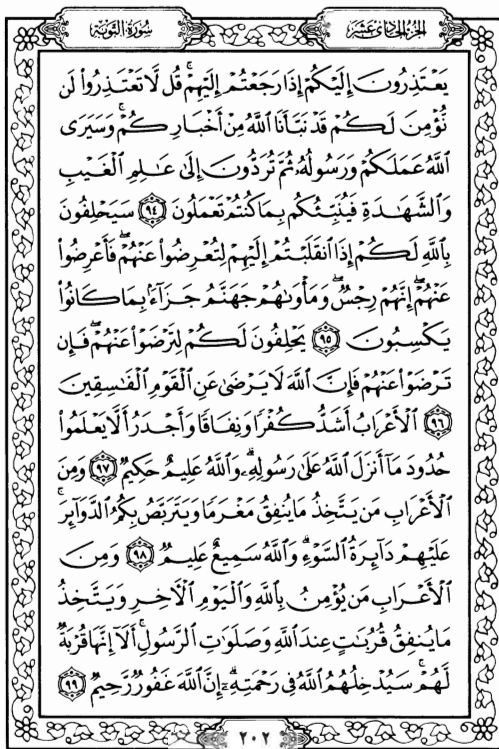 الجزء الحادي عشر سورة التوبة
يَعْتَذِرُونَ إِلَيْكُمْ إِذَا رَجَعْتُمْ إِلَيْهِمْ ۚ قُل لَّا تَعْتَذِرُوا۟ لَن
نُّؤْمِنَ لَكُمْ قَدْ نَبَّأَنَا ٱللَّهُ مِنْ أَخْبَارِكُمْ ۚ وَسَيَرَى
ٱللَّهُ عَمَلَكُمْ وَرَسُولُهُۥ ثُمَّ تُرَدُّونَ إِلَىٰ عَـٰلِمِ ٱلْغَيْبِ
وَٱلشَّهَـٰدَةِ فَيُنَبِّئُكُم بِمَا كُنتُمْ تَعْمَلُونَ ٩٤ سَيَحْلِفُونَ
بِٱللَّهِ لَكُمْ إِذَا ٱنقَلَبْتُمْ إِلَيْهِمْ لِتُعْرِضُوا۟ عَنْهُمْ ۖ فَأَعْرِضُوا۟
عَنْهُمْ ۖ إِنَّهُمْ رِجْسٌ ۖ وَمَأْوَىٰهُمْ جَهَنَّمُ جَزَآءًۢ بِمَا كَانُوا۟
يَكْسِبُونَ ٩٥ يَحْلِفُونَ لَكُمْ لِتَرْضَوْا۟ عَنْهُمْ ۖ فَإِن
تَرْضَوْا۟ عَنْهُمْ فَإِنَّ ٱللَّهَ لَا يَرْضَىٰ عَنِ ٱلْقَوْمِ ٱلْفَـٰسِقِينَ
٩٦ ٱلْأَعْرَابُ أَشَدُّ كُفْرًا وَنِفَاقًا وَأَجْدَرُ أَلَّا يَعْلَمُوا۟
حُدُودَ مَآ أَنزَلَ ٱللَّهُ عَلَىٰ رَسُولِهِۦ ۗ وَٱللَّهُ عَلِيمٌ حَكِيمٌ ٩٧ وَمِنَ
ٱلْأَعْرَابِ مَن يَتَّخِذُ مَا يُنفِقُ مَغْرَمًا وَيَتَرَبَّصُ بِكُمُ ٱلدَّوَآئِرَ ۚ
عَلَيْهِمْ دَآئِرَةُ ٱلسَّوْءِ ۗ وَٱللَّهُ سَمِيعٌ عَلِيمٌ ٩٨ وَمِنَ
ٱلْأَعْرَابِ مَن يُؤْمِنُ بِٱللَّهِ وَٱلْيَوْمِ ٱلْـَٔاخِرِ وَيَتَّخِذُ
مَا يُنفِقُ قُرُبَـٰتٍ عِندَ ٱللَّهِ وَصَلَوَٰتِ ٱلرَّسُولِ ۚ أَلَآ إِنَّهَا قُرْبَةٌ
لَّهُمْ ۚ سَيُدْخِلُهُمُ ٱللَّهُ فِى رَحْمَتِهِۦٓ ۗ إِنَّ ٱللَّهَ غَفُورٌ رَّحِيمٌ ٩٩
٢٠٢